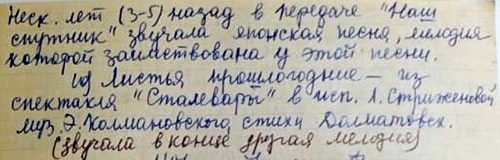 Неск. лет (3-5) назад в передаче "Наш
спутник" звучала японская песня, мелодия
которой заимствована у этой песни.
10) Листья прошлогодние — из
спектакля "Сталевары" в исп. Л. Стриженовой
муз. Э. Колмановского стихи Долматовск.
(звучала в конце другая мелодия)